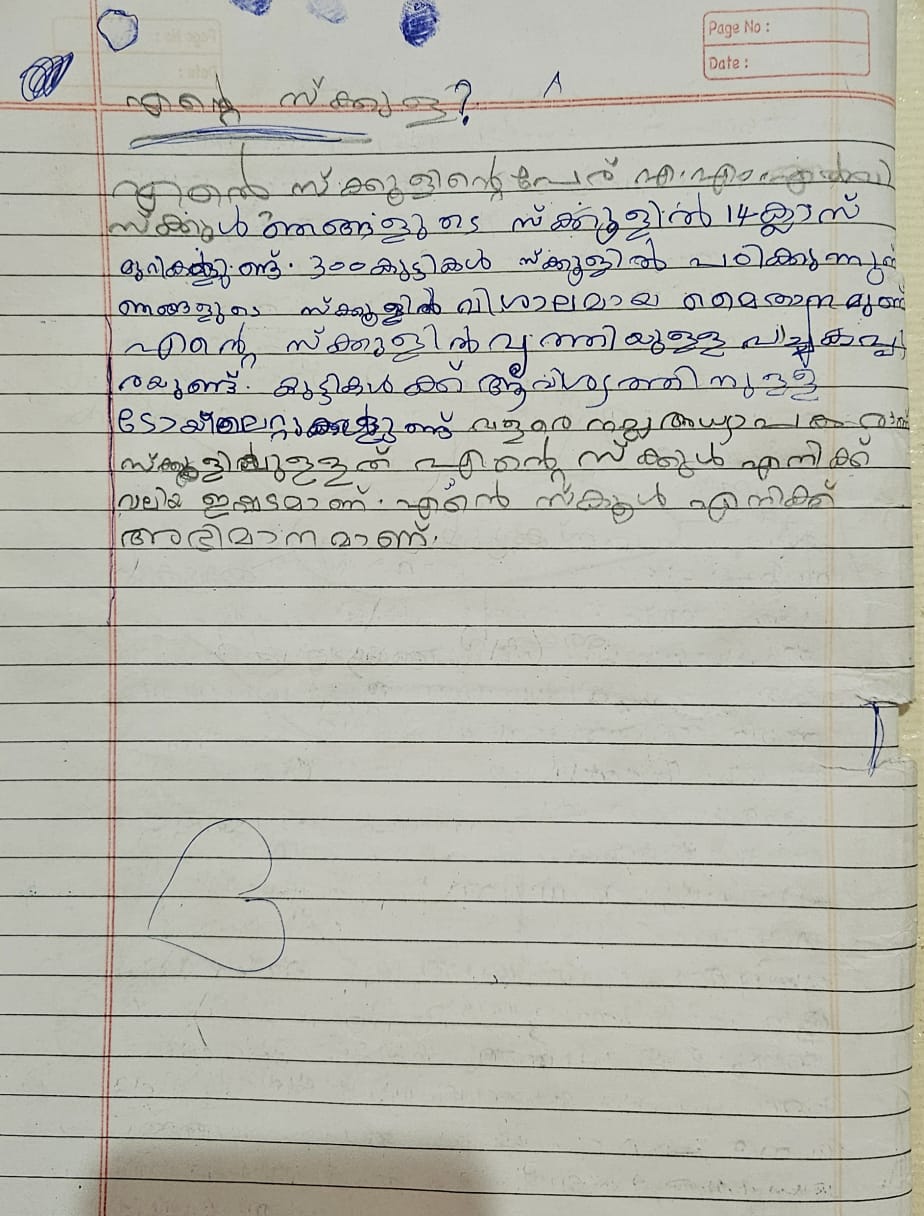 Page No :
Date :
എന്റെ സ്ക്കൂള?
എന്റെ സ്ക്കൂളിന്റെ പേര് എ.എം.എൽ.പി
സ്ക്കൂൾ ഞങ്ങളുടെ സ്ക്കൂളിൽ 14 ക്ലാസ്
മുറികളുണ്ട്. 300 കുട്ടികൾ സ്ക്കൂളിൽ പഠിക്കുന്നുണ്ട്
ഞങ്ങളുടെ സ്ക്കൂളിൽ വിശാലമായ മൈതാനമുണ്ട്
എന്റെ സ്ക്കൂളിൽ വൃത്തിയുള്ള
രയുണ്ട്. കുട്ടികൾക്ക് ആവിശ്യത്തിനുള്ള
ടോയിലെറ്റുകളുണ്ട് വളരെ നല്ല അധ്യാപകരാണ്
സ്ക്കൂളിലുള്ളത് എന്റെ സ്ക്കൂൾ എനിക്ക്
വലിയ ഇഷ്ടമാണ്. എന്റെ സ്ക്കൂൾ എനിക്ക്
അഭിമാനമാണ്.